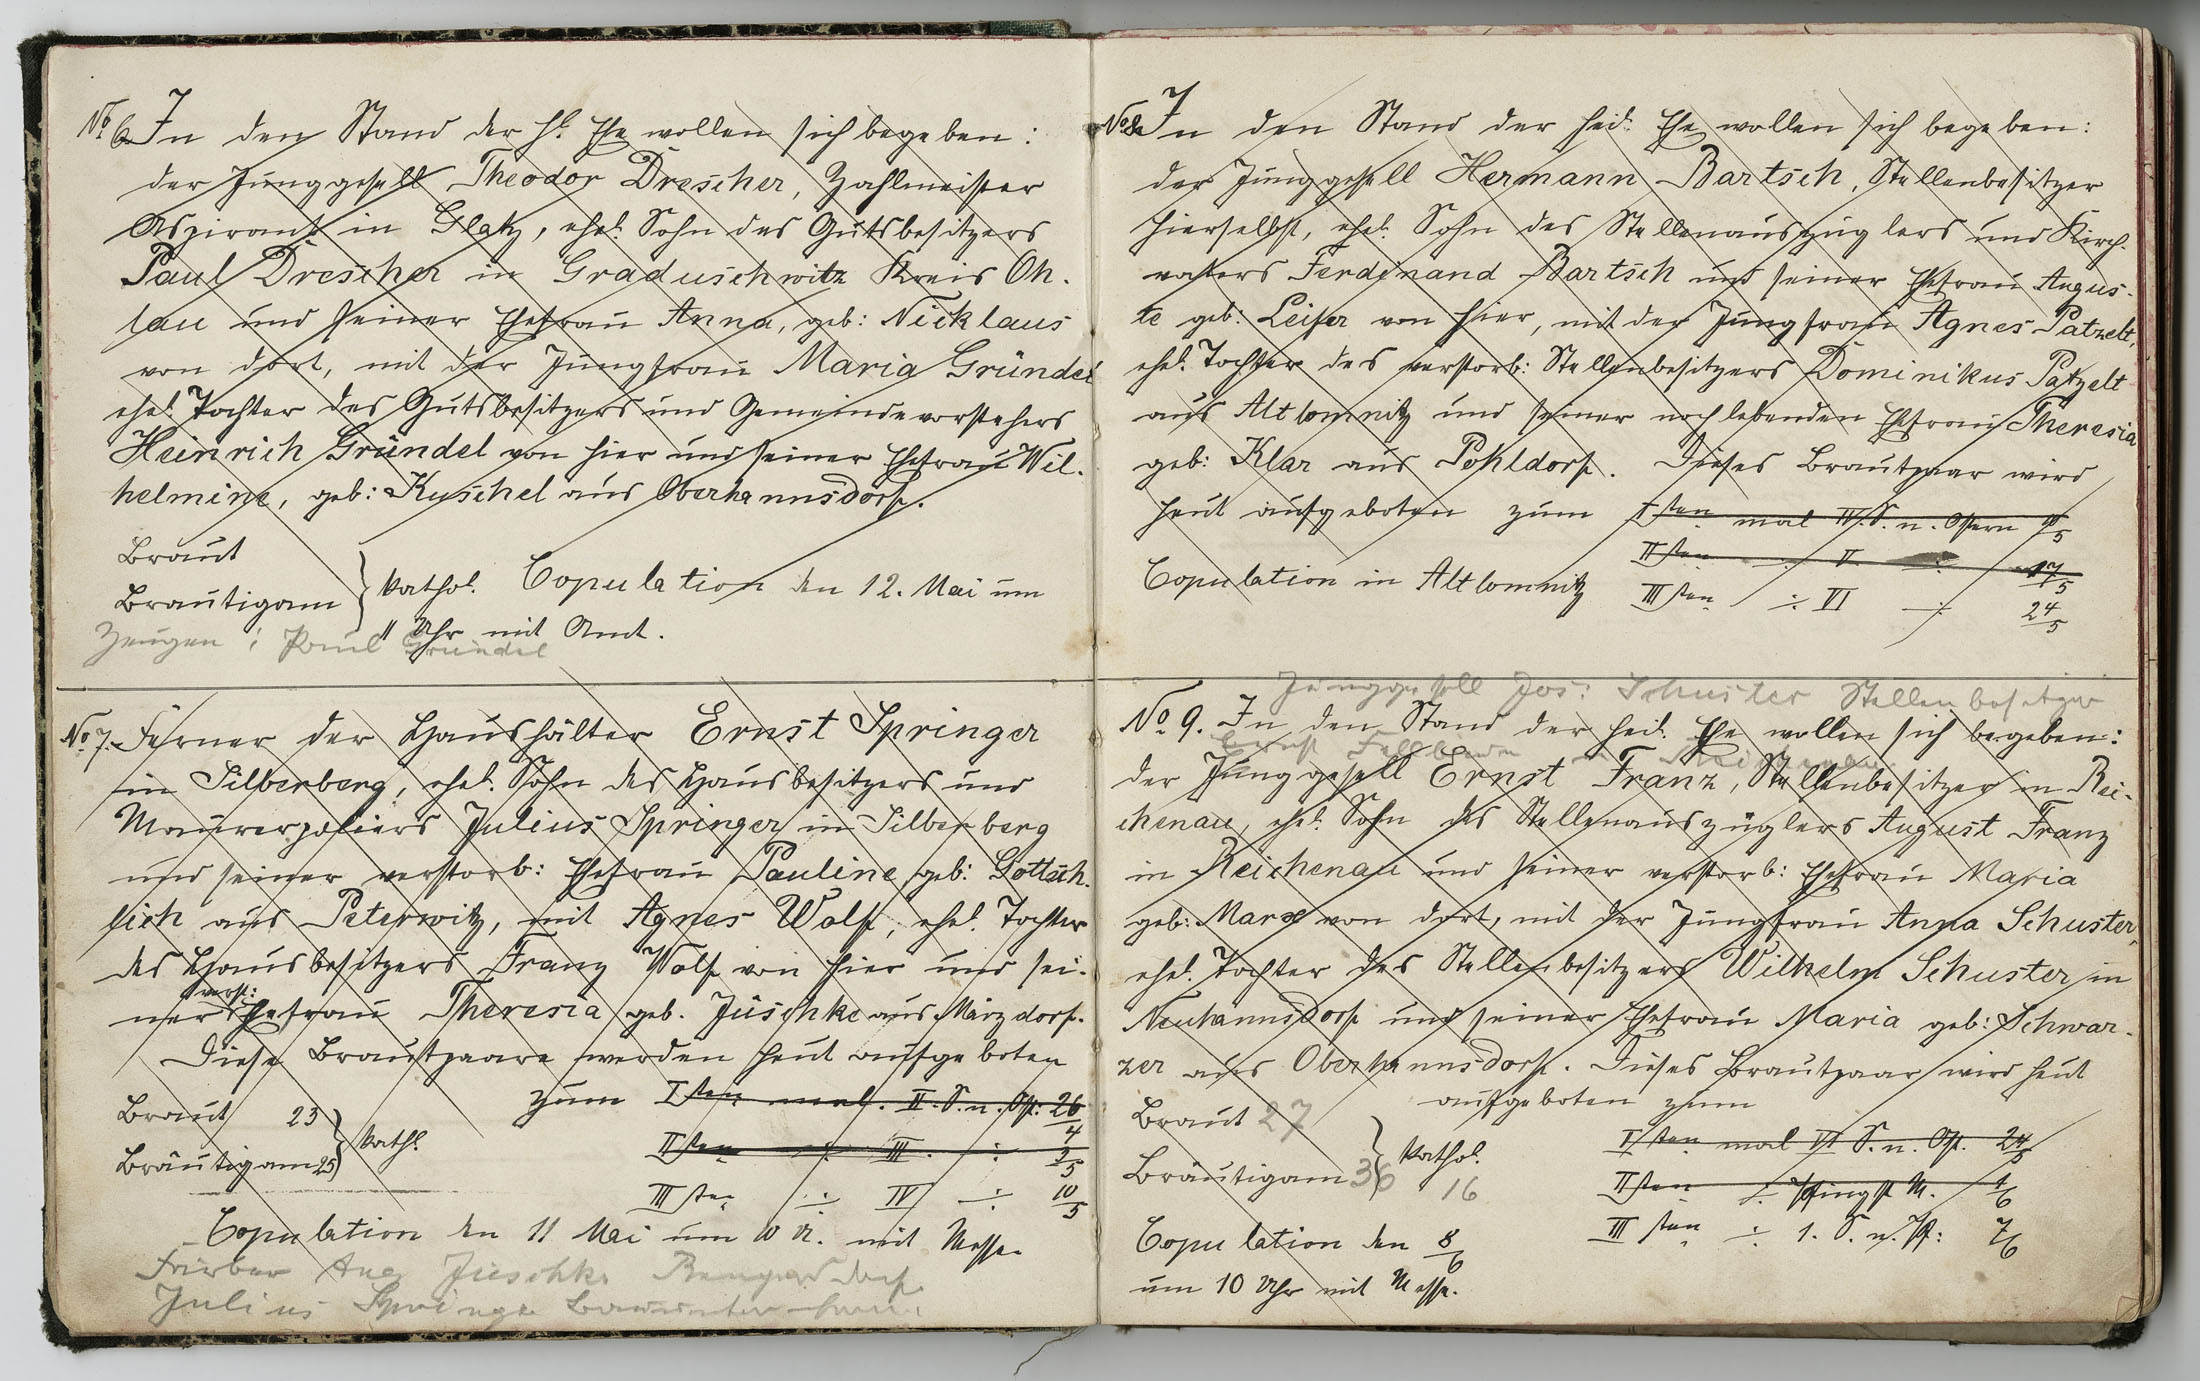 No 6. In den Stand der hl. Ehe wollen sich begeben:
der Junggesell Theodor Drescher, Zahlmeister
Aspirant in Glatz, ehel. Sohn des Gutsbesitzers
Paul Drescher in Graduschwitz Kreis Oh-
lau und seiner Ehefrau Anna, geb: Nicklaus
von dort, mit der Jungfrau Maria Gründel
ehel. Tochter des Gutsbesitzers und Gemeindevorstehers
Heinrich Gründel von hier und seiner Ehefrau Wil-
helmine, geb: Kuschel aus Oberhannsdorf.
Braut
Bräutigam } kathol. Copulation den 12. Mai um
11 Uhr mit Amt.
Zeugen: Paul Gründel
No 7. Ferner der Haushälter Ernst Springer
in Silberberg, ehel. Sohn des Hausbesitzers und
Maurerpoliers Julius Springer in Silberberg
und seiner verstorb: Ehefrau Pauline, geb: Gottsch-
lich aus Peterwitz, mit Agnes Wolf, ehel. Tochter
des Hausbesitzers Franz Wolf von hier und sei-
verst:
ner Ehefrau Theresia geb. Jüschke aus Märzdorf.
Diese Brautpaare werden heut aufgeboten
zum Isten mal. II. S. n. Ost: 26/4
Braut 23
Bräutigam 25 } kathl.
IIsten ÷ III. ÷ 3/5
IIIsten ÷ IV ÷ 10/5
Copulation den 11 Mai um 10 U. mit Messe
Aug Jüschke
Julius Springer
No 8. In den Stand der heil: Ehe wollen sich begeben:
der Junggesell Hermann Bartsch, Stellenbesitzer
hierselbst, ehel. Sohn des Stellenauszüglers und Kirch-
vaters Ferdinand Bartsch und seiner Ehefrau Augus-
te geb: Leiser von hier, mit der Jungfrau Agnes Patzelt,
ehel. Tochter des verstorb: Stellenbesitzers Dominikus Patzelt
aus Altlomnitz und seiner noch lebenden Ehefrau Theresia
geb: Klar aus Pohldorf. Dieses Brautpaar wird
heut aufgeboten zum Isten mal IV. S. n. Ostern 10/5
IIsten ÷ V ÷ 17/5
Copulation in Altlomnitz IIIsten ÷ VI ÷ 24/5
Junggesell Jos: Schuster Stellenbesitzer
No 9. In den Stand der heil. Ehe wollen sich begeben:
Ernst
der Junggesell Ernst Franz, Stellenbesitzer in Rei-
chenau, ehel. Sohn des Stellenauszüglers August Franz
in Reichenau und seiner verstorb: Ehefrau Maria
geb: Marx von dort, mit der Jungfrau Anna Schuster,
ehel. Tochter des Stellenbesitzers Wilhelm Schuster in
Neuhannsdorf und seiner Ehefrau Maria geb: Schwar-
zer aus Oberhannsdorf. Dieses Brautpaar wird heut
aufgeboten zum
Braut 27
Bräutigam 36 } kathol.
16
Isten mal VI S. n. Ost. 24/5
IIsten ÷ Pfingst M. 1/6
IIIsten ÷ 1. S. n. Pf: 7/6
Copulation den 8/6
um 10 Uhr mit Messe.